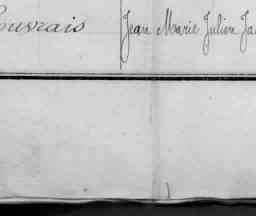 ouvrais Jean Marie Julien